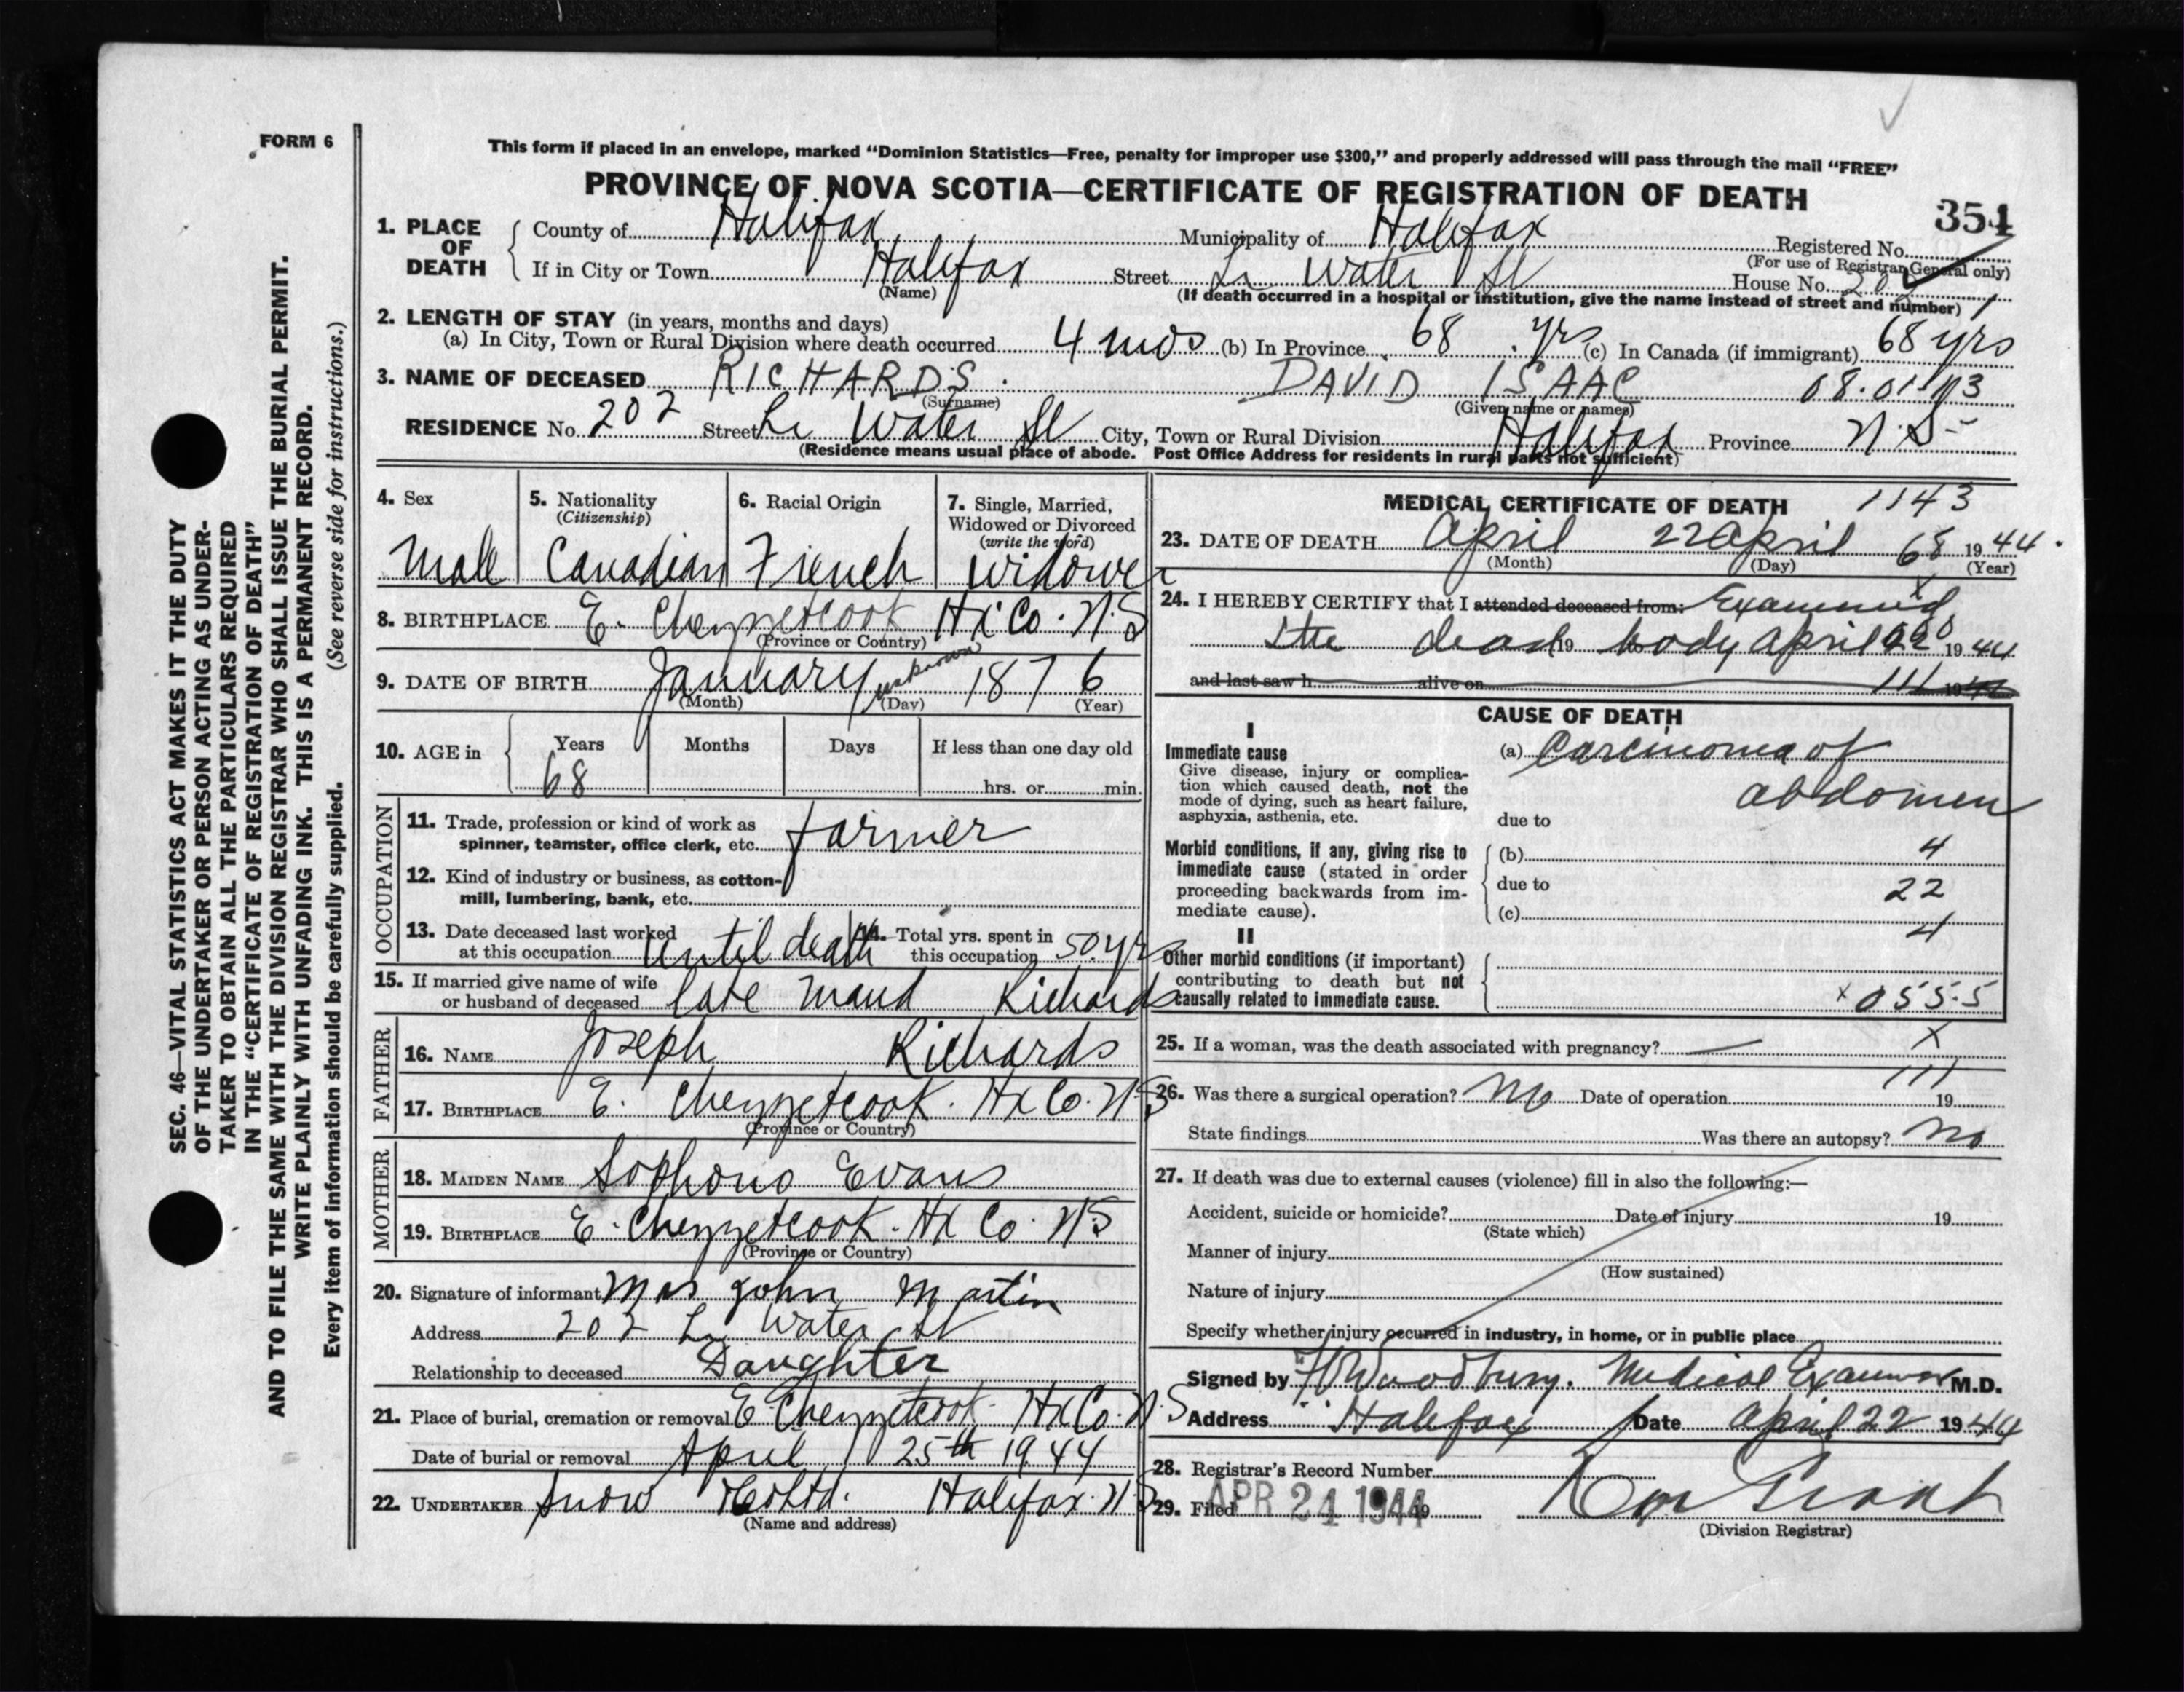 FORM 6
This form if placed in an envelope, marked “Dominion Statistics—Free, penalty for improper use $300,” and properly addressed will pass through the mail “FREE”
PROVINCE OF NOVA SCOTIA—CERTIFICATE OF REGISTRATION OF DEATH
354
1. PLACE OF DEATH County of Halifax Municipality of Halifax Registered No.
(For use of Registrar General only)
If in City or Town Halifax Street Lr Water St House No. 202
(Name) (If death occurred in a hospital or institution, give the name instead of street and number)
2. LENGTH OF STAY (in years, months and days)
(a) In City, Town or Rural Division where death occurred 4 mos (b) In Province 68 yrs (c) In Canada (if immigrant) 68 yrs
3. NAME OF DECEASED RICHARDS. DAVID ISAAC
(Surname) (Given name or names)
RESIDENCE No. 202 Street Lr Water St City, Town or Rural Division Halifax Province N.S-
(Residence means usual place of abode. Post Office Address for residents in rural parts not sufficient)
SEC. 46—VITAL STATISTICS ACT MAKES IT THE DUTY
OF THE UNDERTAKER OR PERSON ACTING AS UNDER-
TAKER TO OBTAIN ALL THE PARTICULARS REQUIRED
IN THE “CERTIFICATE OF REGISTRATION OF DEATH”
AND TO FILE THE SAME WITH THE DIVISION REGISTRAR WHO SHALL ISSUE THE BURIAL PERMIT.
WRITE PLAINLY WITH UNFADING INK. THIS IS A PERMANENT RECORD.
Every item of information should be carefully supplied. (See reverse side for instructions.)
4. Sex Male
5. Nationality (Citizenship) Canadian
6. Racial Origin French
7. Single, Married, Widowed or Divorced (write the word) Widower
8. BIRTHPLACE E. Chezzetcook Hx Co. N.S
(Province or Country)
9. DATE OF BIRTH January unknown 1876
(Month) (Day) (Year)
10. AGE in Years Months Days If less than one day old
68 hrs. or min.
OCCUPATION
11. Trade, profession or kind of work as
spinner, teamster, office clerk, etc. farmer
12. Kind of industry or business, as cotton-
mill, lumbering, bank, etc.
13. Date deceased last worked
at this occupation until death
14. Total yrs. spent in
this occupation 50 yrs
15. If married give name of wife
or husband of deceased late Maud Richards
FATHER
16. NAME Joseph Richards
17. BIRTHPLACE E. Chezzetcook. Hx Co. N.S
(Province or Country)
MOTHER
18. MAIDEN NAME Evans
19. BIRTHPLACE E. Chezzetcook. Hx Co. N.S
(Province or Country)
20. Signature of informant Mrs John Martin
Address 202 Lr Water St
Relationship to deceased Daughter
21. Place of burial, cremation or removal E Chezzetcook. Hx Co. N.S
Date of burial or removal April 25th 1944
22. UNDERTAKER Snow & Co Ltd. Halifax. N.S
(Name and address)
MEDICAL CERTIFICATE OF DEATH 1143
23. DATE OF DEATH April 22 April 68 1944.
(Month) (Day) (Year)
24. I HEREBY CERTIFY that I attended deceased from: Examined
the dead 19 body April 22 1944
and last saw h alive on 111 19
CAUSE OF DEATH
I
Immediate cause (a) Carcinoma of
abdomen
Give disease, injury or complica-
tion which caused death, not the
mode of dying, such as heart failure,
asphyxia, asthenia, etc. due to
Morbid conditions, if any, giving rise to (b) 4
immediate cause (stated in order
proceeding backwards from im- due to 22
mediate cause). (c) 4
II
Other morbid conditions (if important)
contributing to death but not
causally related to immediate cause. x 055.5
25. If a woman, was the death associated with pregnancy? — X
111
26. Was there a surgical operation? No Date of operation 19
State findings Was there an autopsy? no
27. If death was due to external causes (violence) fill in also the following:—
Accident, suicide or homicide? Date of injury 19
(State which)
Manner of injury
(How sustained)
Nature of injury
Specify whether injury occurred in industry, in home, or in public place
Signed by Woodbury. Medical Examiner M.D.
Address Halifax Date April 22 1944
28. Registrar's Record Number
29. Filed APR 24 1944 19
(Division Registrar)